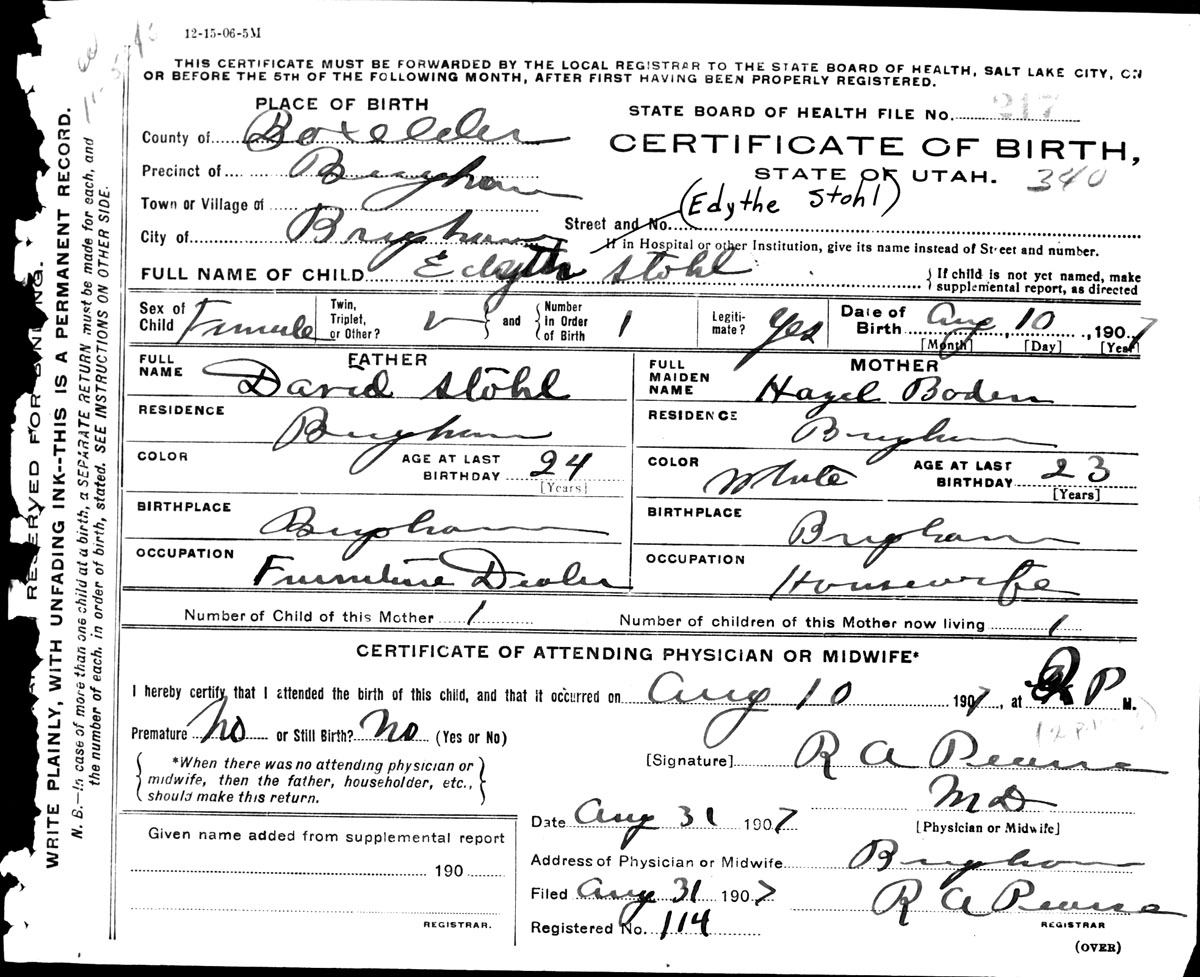 12-15-06-5M
THIS CERTIFICATE MUST BE FORWARDED BY THE LOCAL REGISTRAR TO THE STATE BOARD OF HEALTH, SALT LAKE CITY, ON
OR BEFORE THE 5TH OF THE FOLLOWING MONTH, AFTER FIRST HAVING BEEN PROPERLY REGISTERED.
PLACE OF BIRTH
STATE BOARD OF HEALTH FILE No. 217
County of Boxelder
CERTIFICATE OF BIRTH,
Precinct of Brigham
STATE OF UTAH. 340
Town or Village of
(Edythe Stohl)
Street and No.
City of Brigham
If in Hospital or other Institution, give its name instead of Street and number.
FULL NAME OF CHILD Edyth Stohl
If child is not yet named, make
supplemental report, as directed
Sex of Child Female
Twin, Triplet, or Other?
and
Number in Order of Birth 1
Legiti-mate? Yes
Date of Birth Aug 10, 1907
[Month] [Day] [Year]
FATHER
FULL NAME David Stohl
RESIDENCE Brigham
COLOR
AGE AT LAST BIRTHDAY 24
[Years]
BIRTHPLACE Brigham
OCCUPATION Furniture Dealer
MOTHER
FULL MAIDEN NAME Hazel Boden
RESIDENCE Brigham
COLOR White
AGE AT LAST BIRTHDAY 23
[Years]
BIRTHPLACE Brigham
OCCUPATION Housewife
Number of Child of this Mother 1
Number of children of this Mother now living 1
CERTIFICATE OF ATTENDING PHYSICIAN OR MIDWIFE*
I hereby certify that I attended the birth of this child, and that it occurred on Aug 10 1907, at P M.
Premature No or Still Birth? No (Yes or No)
*When there was no attending physician or
midwife, then the father, householder, etc.,
should make this return.
[Signature] R A Pearse
M D
[Physician or Midwife]
Date Aug 31 1907
Given name added from supplemental report
190
REGISTRAR.
Address of Physician or Midwife Brigham
Filed Aug 31 1907
R A Pearse
REGISTRAR
Registered No. 114
(OVER)
RESERVED FOR
WRITE PLAINLY, WITH UNFADING INK--THIS IS A PERMANENT RECORD.
N. B.—In case of more than one child at a birth, a SEPARATE RETURN must be made for each, and
the number of each, in order of birth, stated. SEE INSTRUCTIONS ON OTHER SIDE.